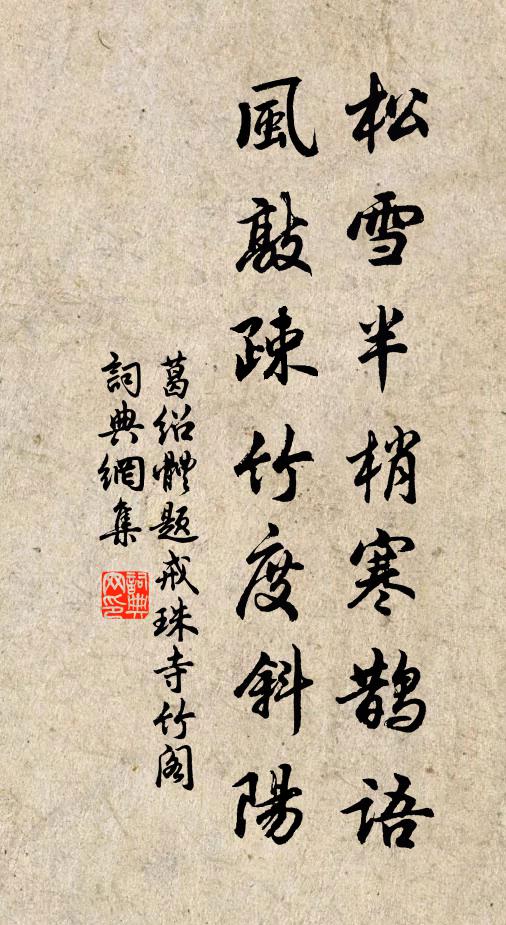 松雪半梢寒鵲語
風敲疎竹度斜陽
葛绍體題戒珠寺竹阁
詞典網集
詞典网印